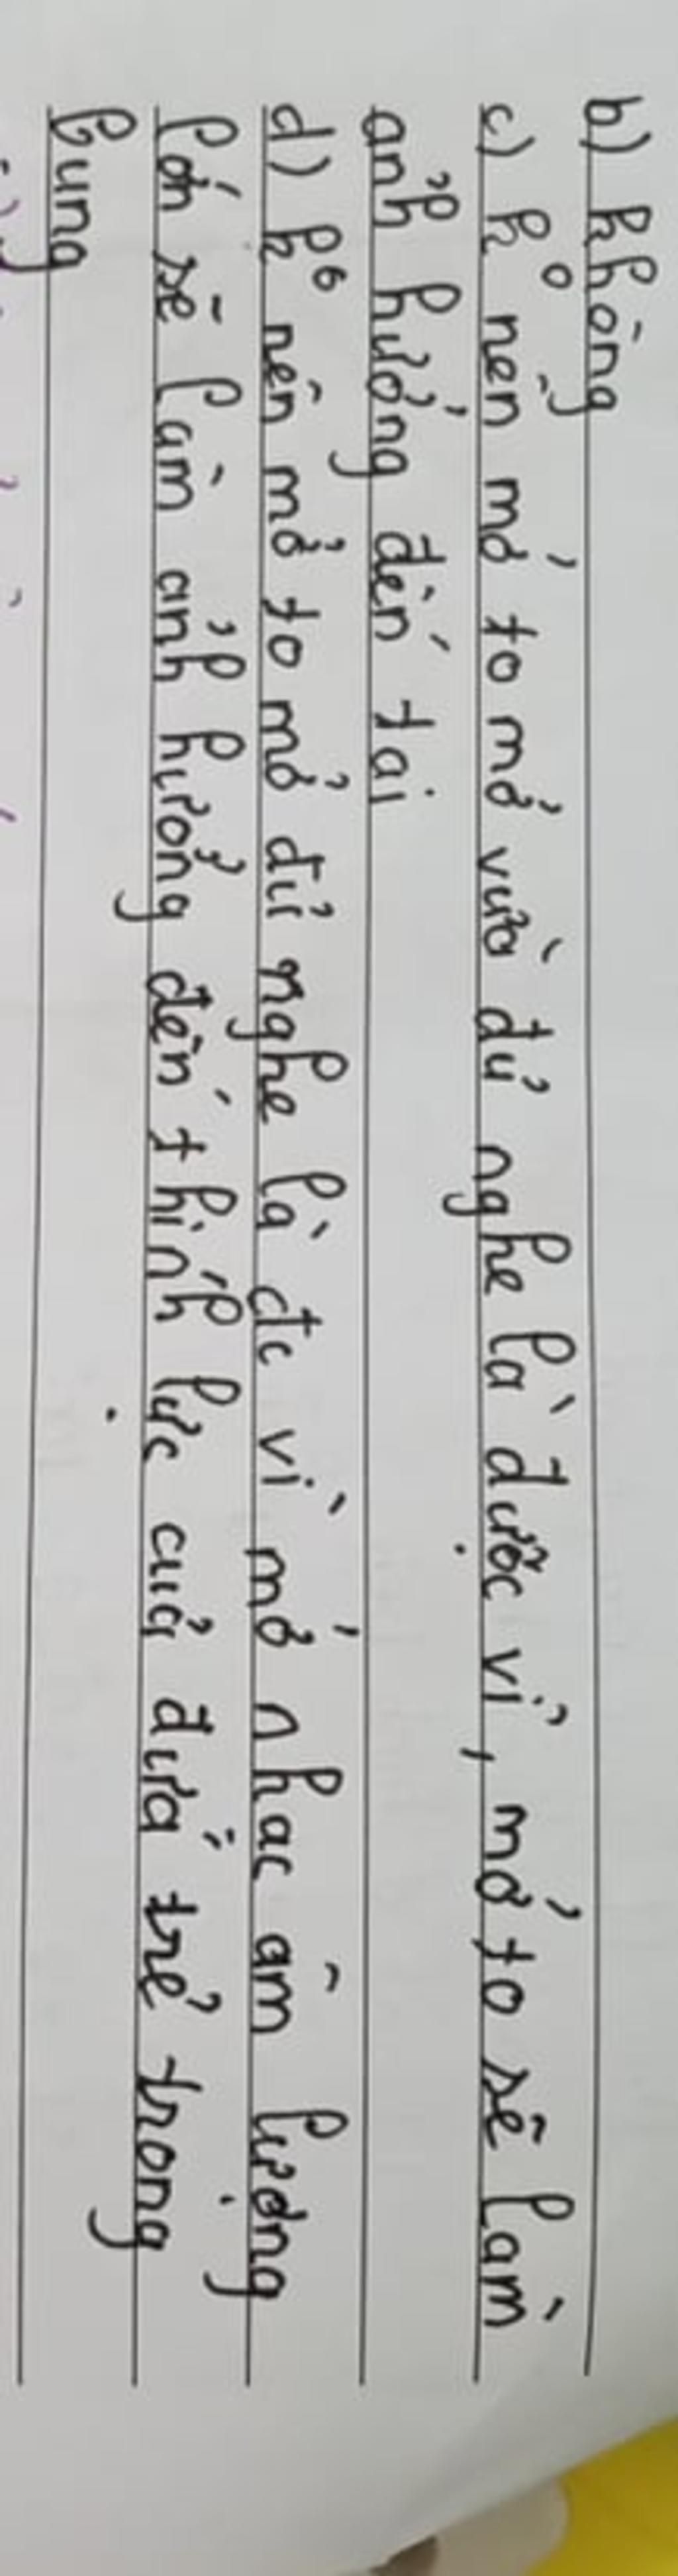 b) Không
c) k° nên mở to mở vừa đủ nghe là được vì, mở to sẽ làm
ảnh hưởng đến tai
d) kô nên mở to mở đủ nghe là đc vì mở nhac âm lượng
lớn sẽ làm ảnh hưởng đến thính lực của đứa trẻ trong
bụng